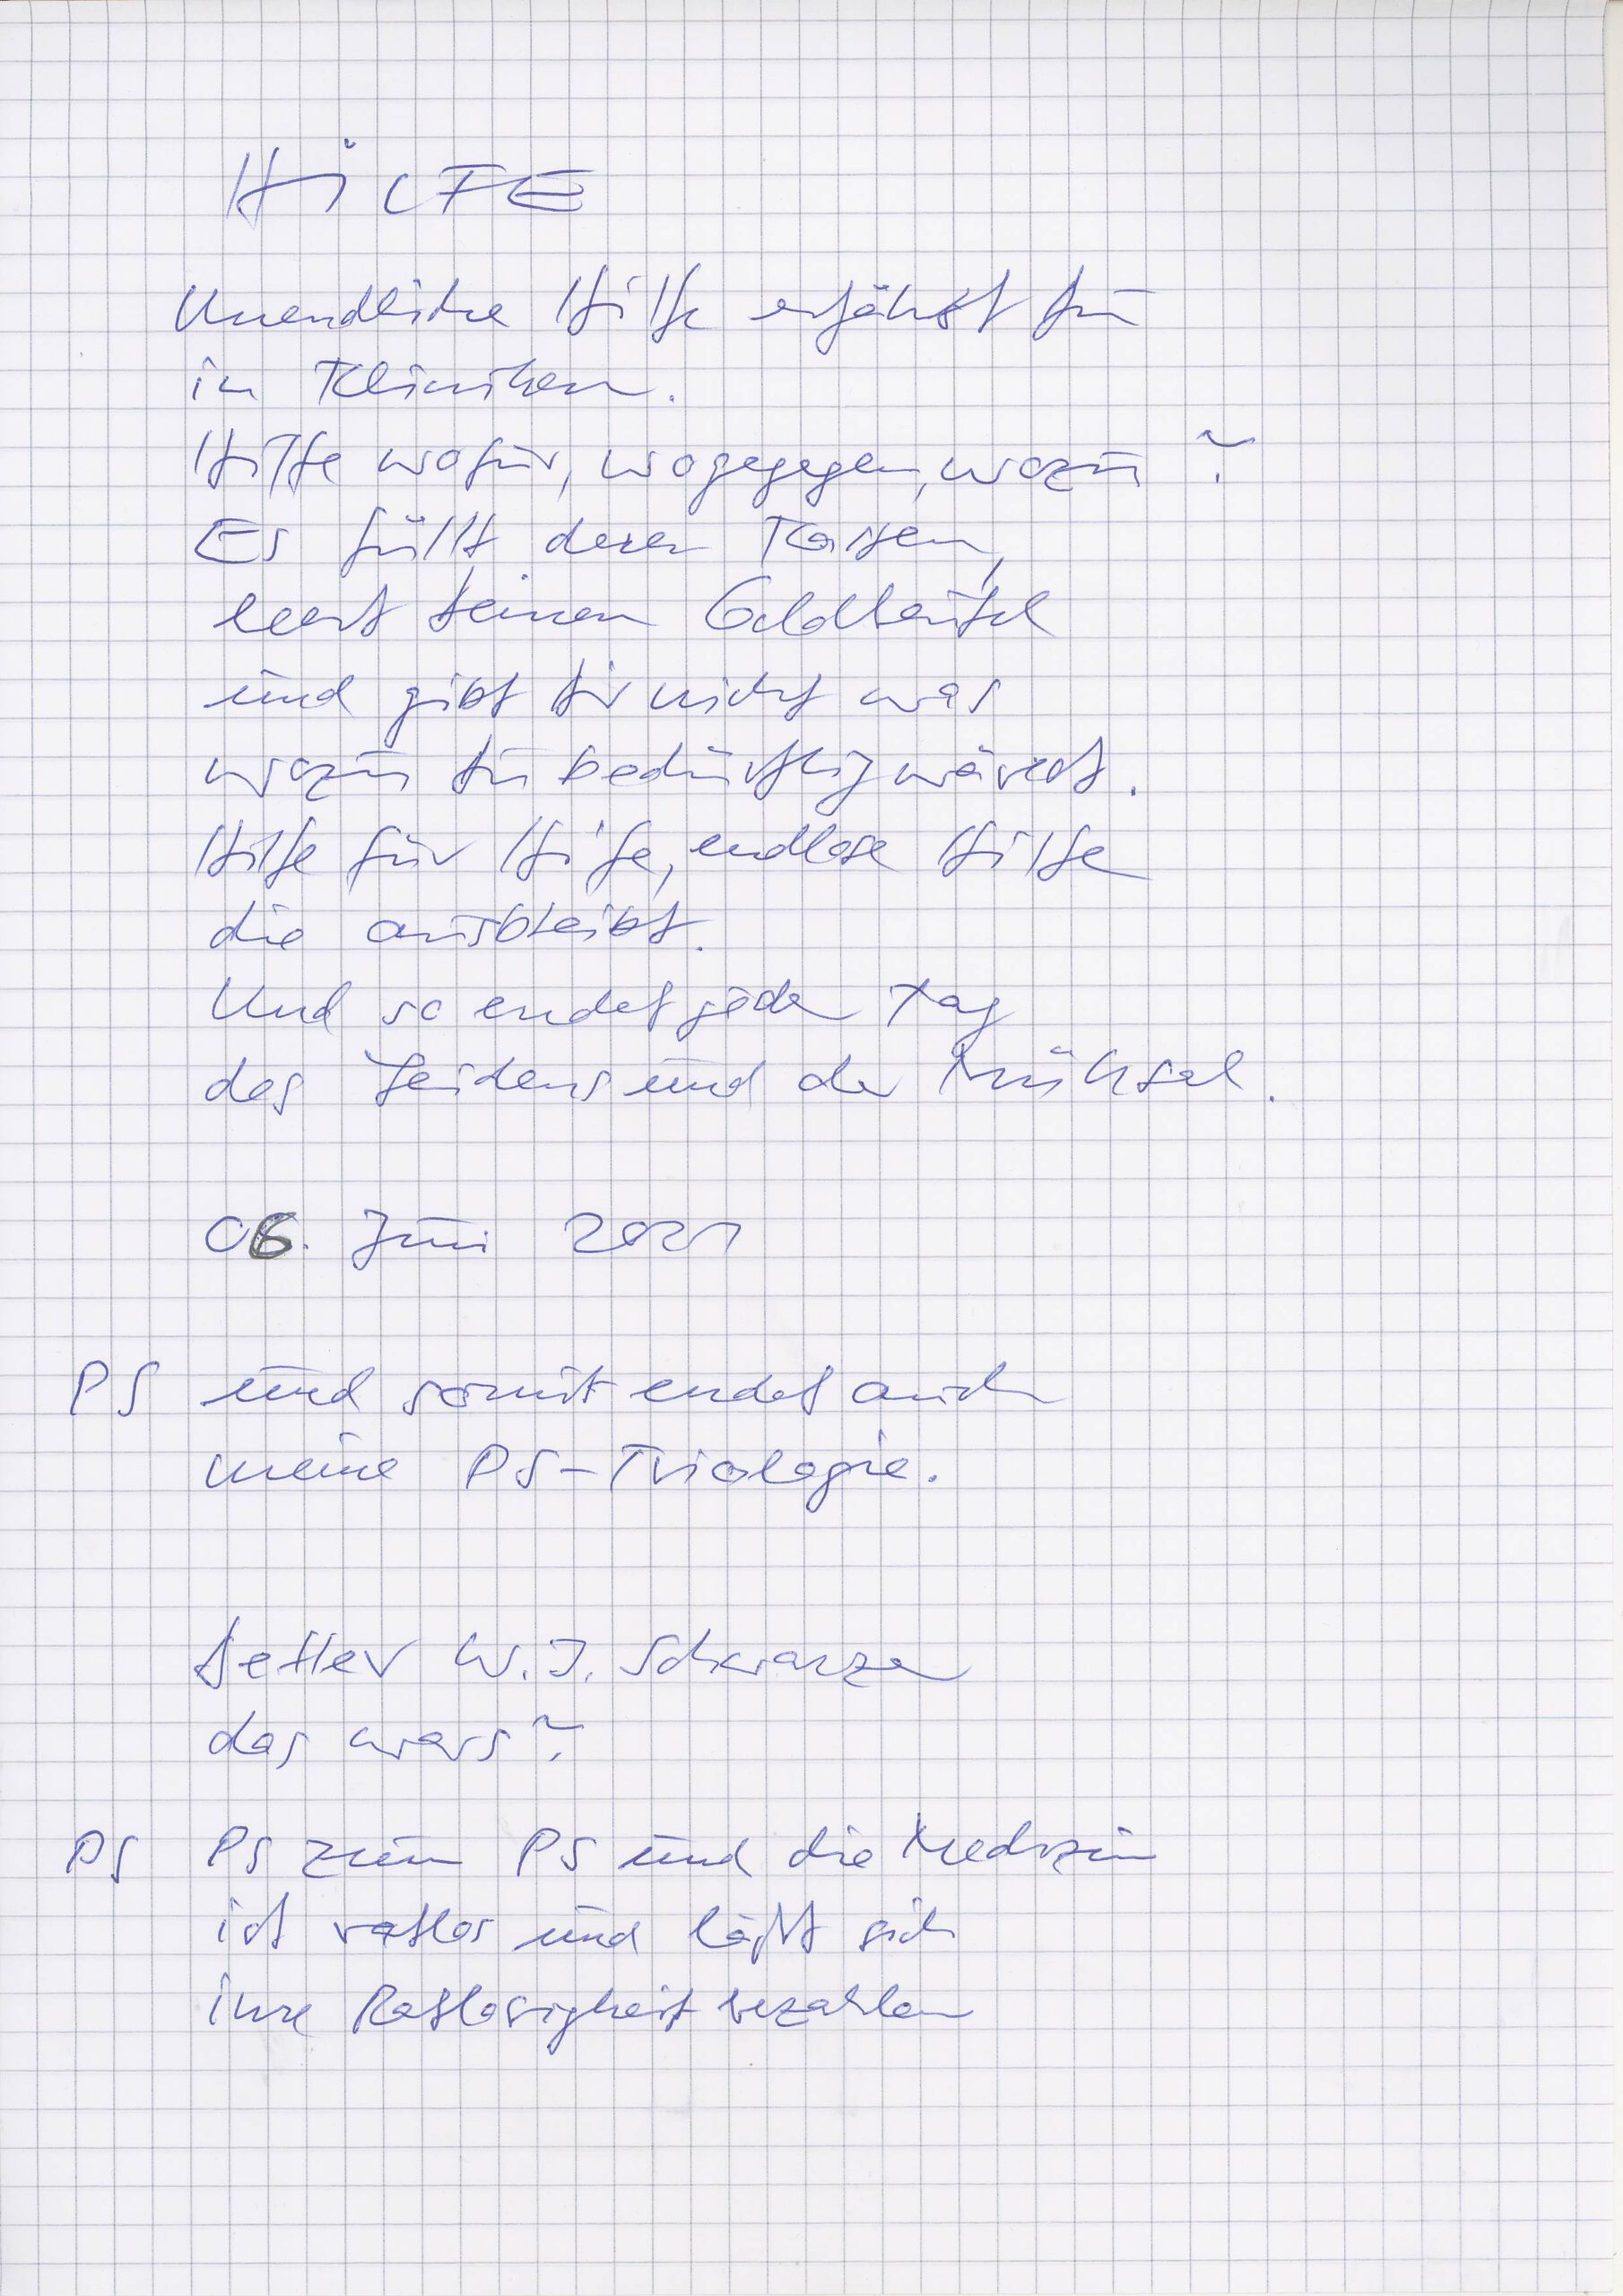 HILFE
Unendliche Hilfe erfährst Du
in Kliniken.
Hilfe wofür, wogegegen, wozu ?
Es füllt deren Kassen,
leert Deinen Geldbeutel
und gibt Dir nicht was
wozu Du bedürftig wärest.
Hilfe für Hilfe, endlose Hilfe
die ausbleibt.
Und so endet jeder Tag
des Leidens und der Mühsal.
06. Juni 2021
PS und somit endet auch
meine PS-Triologie.
Detlev W.J. Schwarze
das wars?
PS PS zum PS und die Medizin
ist ratlos und läßt sich
ihre Ratlosigkeit bezahlen